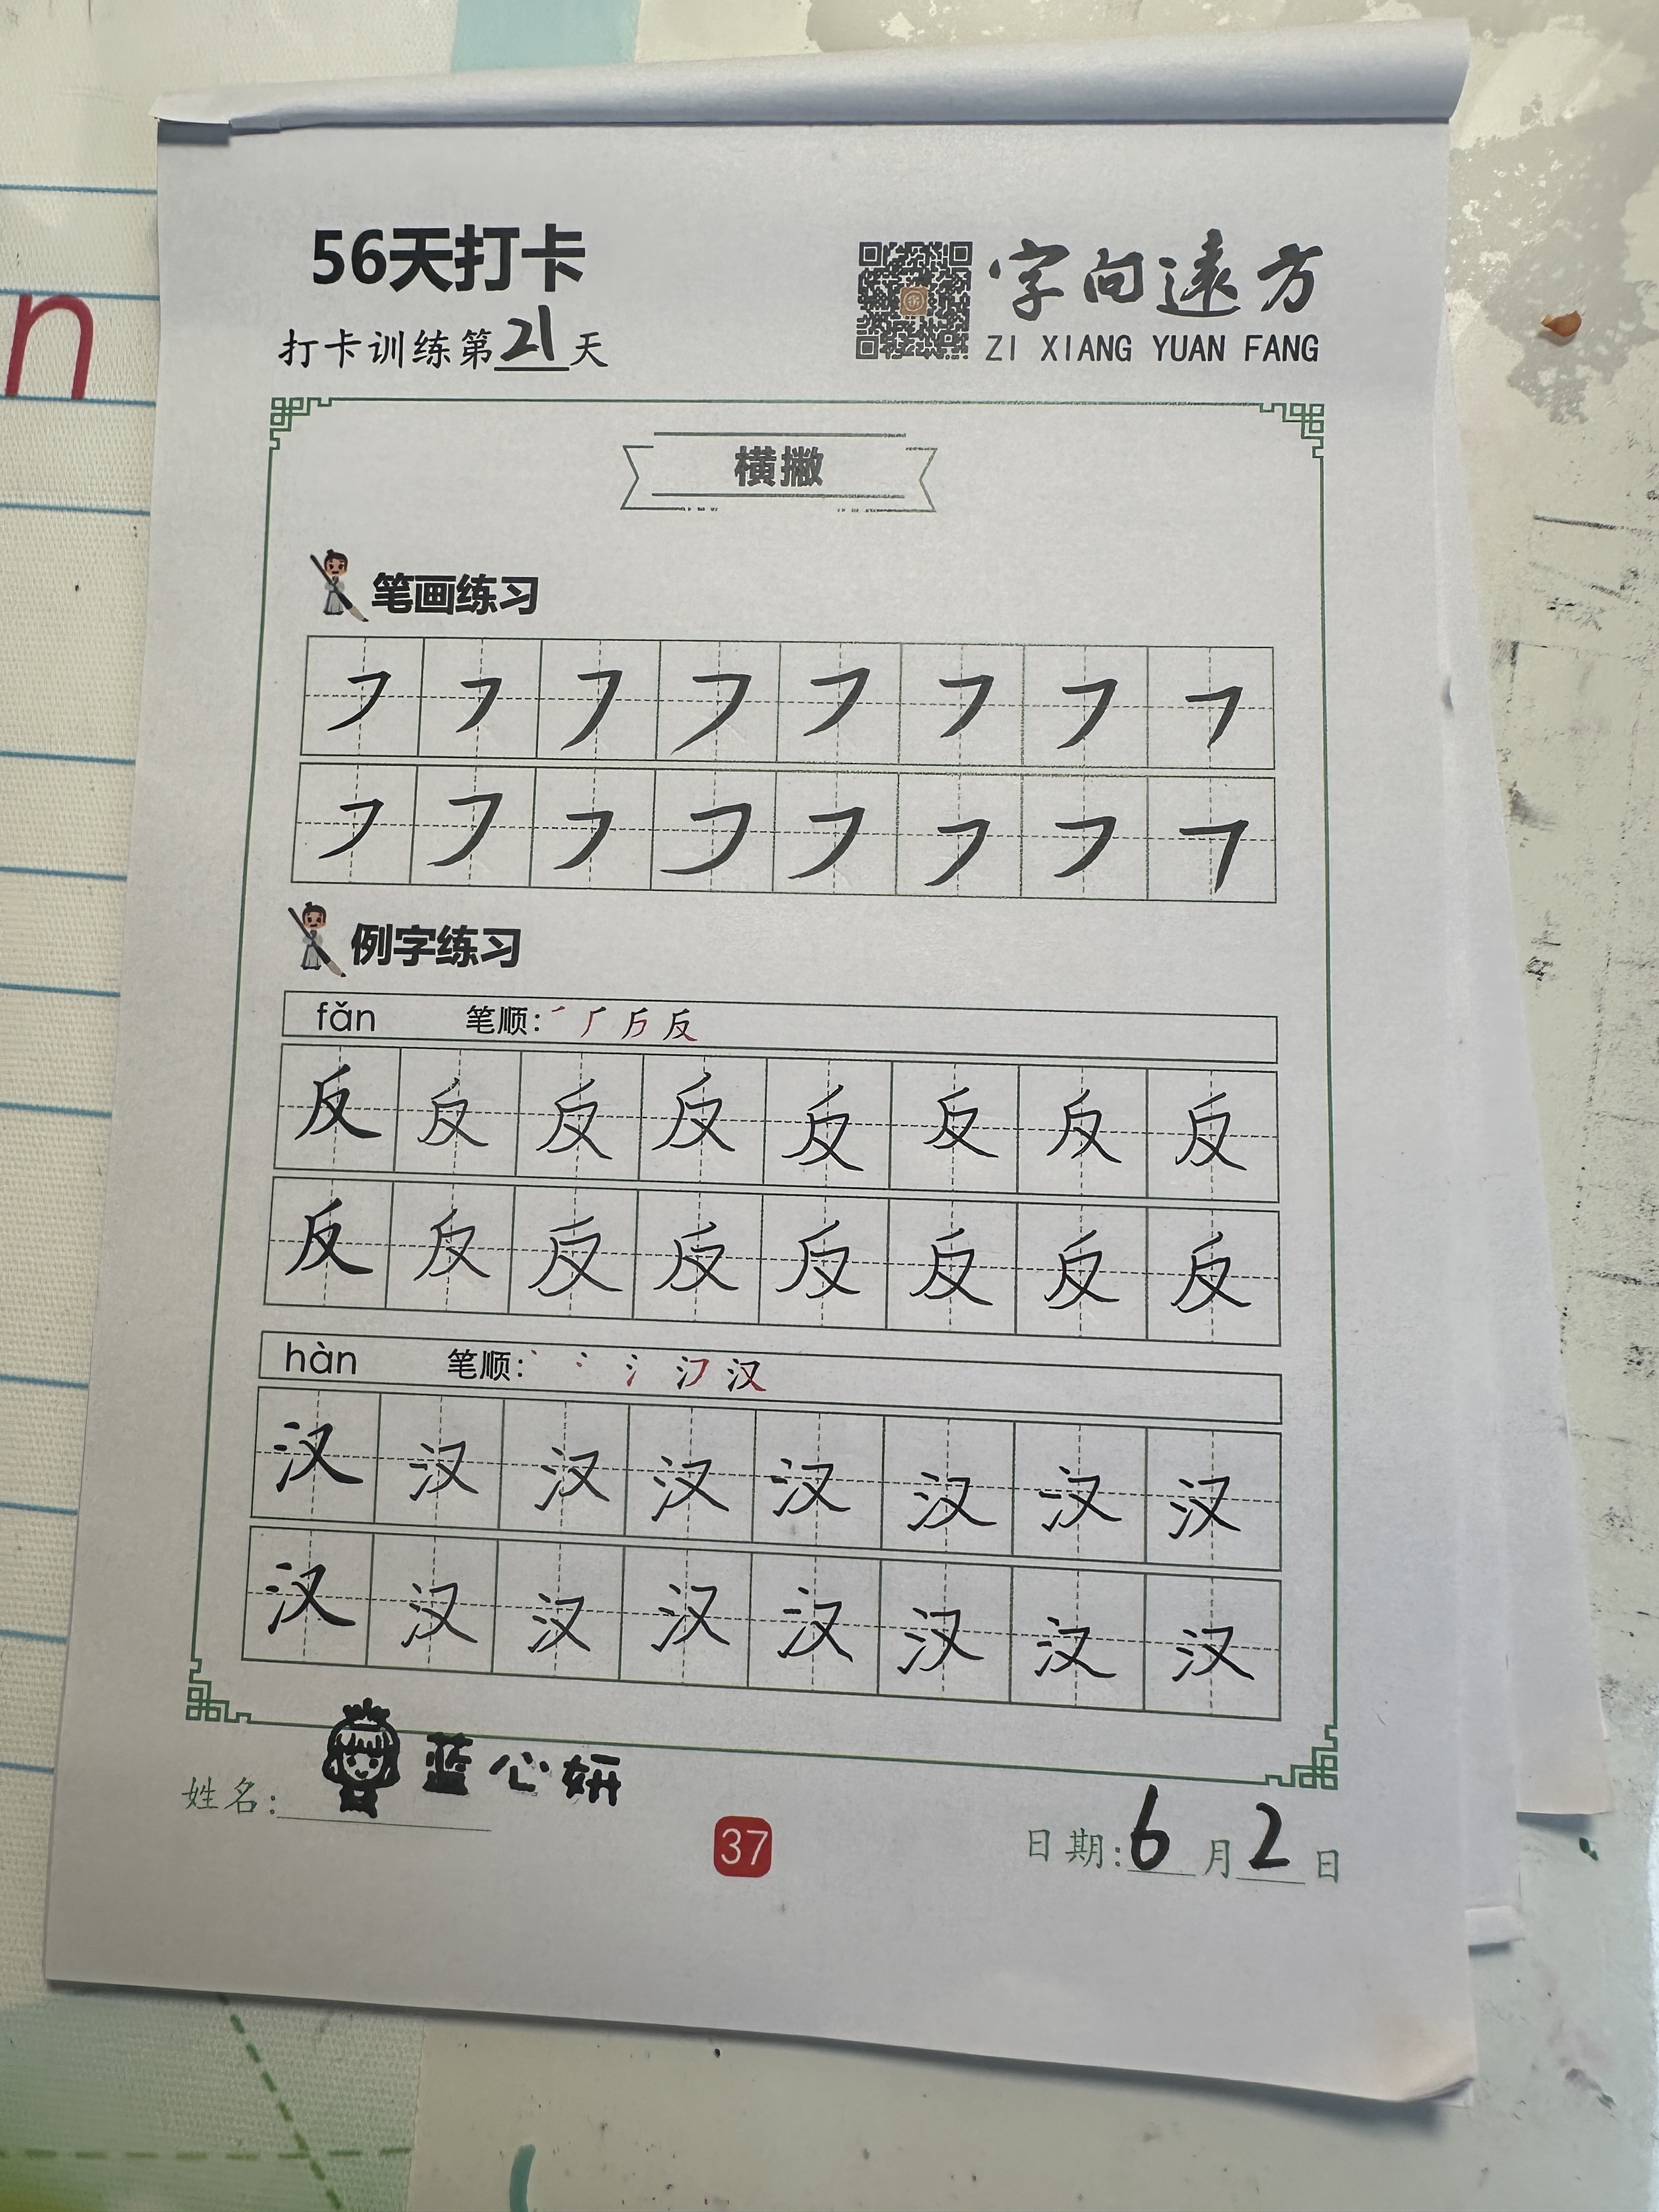 n
56天打卡
打卡训练第21天
字向远方
ZI XIANG YUAN FANG
横撇
笔画练习
㇇ ㇇ ㇇ ㇇ ㇇ ㇇ ㇇ ㇇
㇇ ㇇ ㇇ ㇇ ㇇ ㇇ ㇇ ㇇
例字练习
fǎn 笔顺: ㇒ 厂 𠂆 反
反 反 反 反 反 反 反 反
反 反 反 反 反 反 反 反
hàn 笔顺: 丶 冫 氵 汉
汉 汉 汉 汉 汉 汉 汉 汉
汉 汉 汉 汉 汉 汉 汉 汉
姓名: 蓝心妍
37
日期: 6月2日